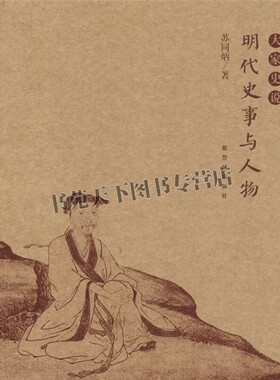 大家史说
明代史事与人物
苏同炳/著
书苑天下图书专营店